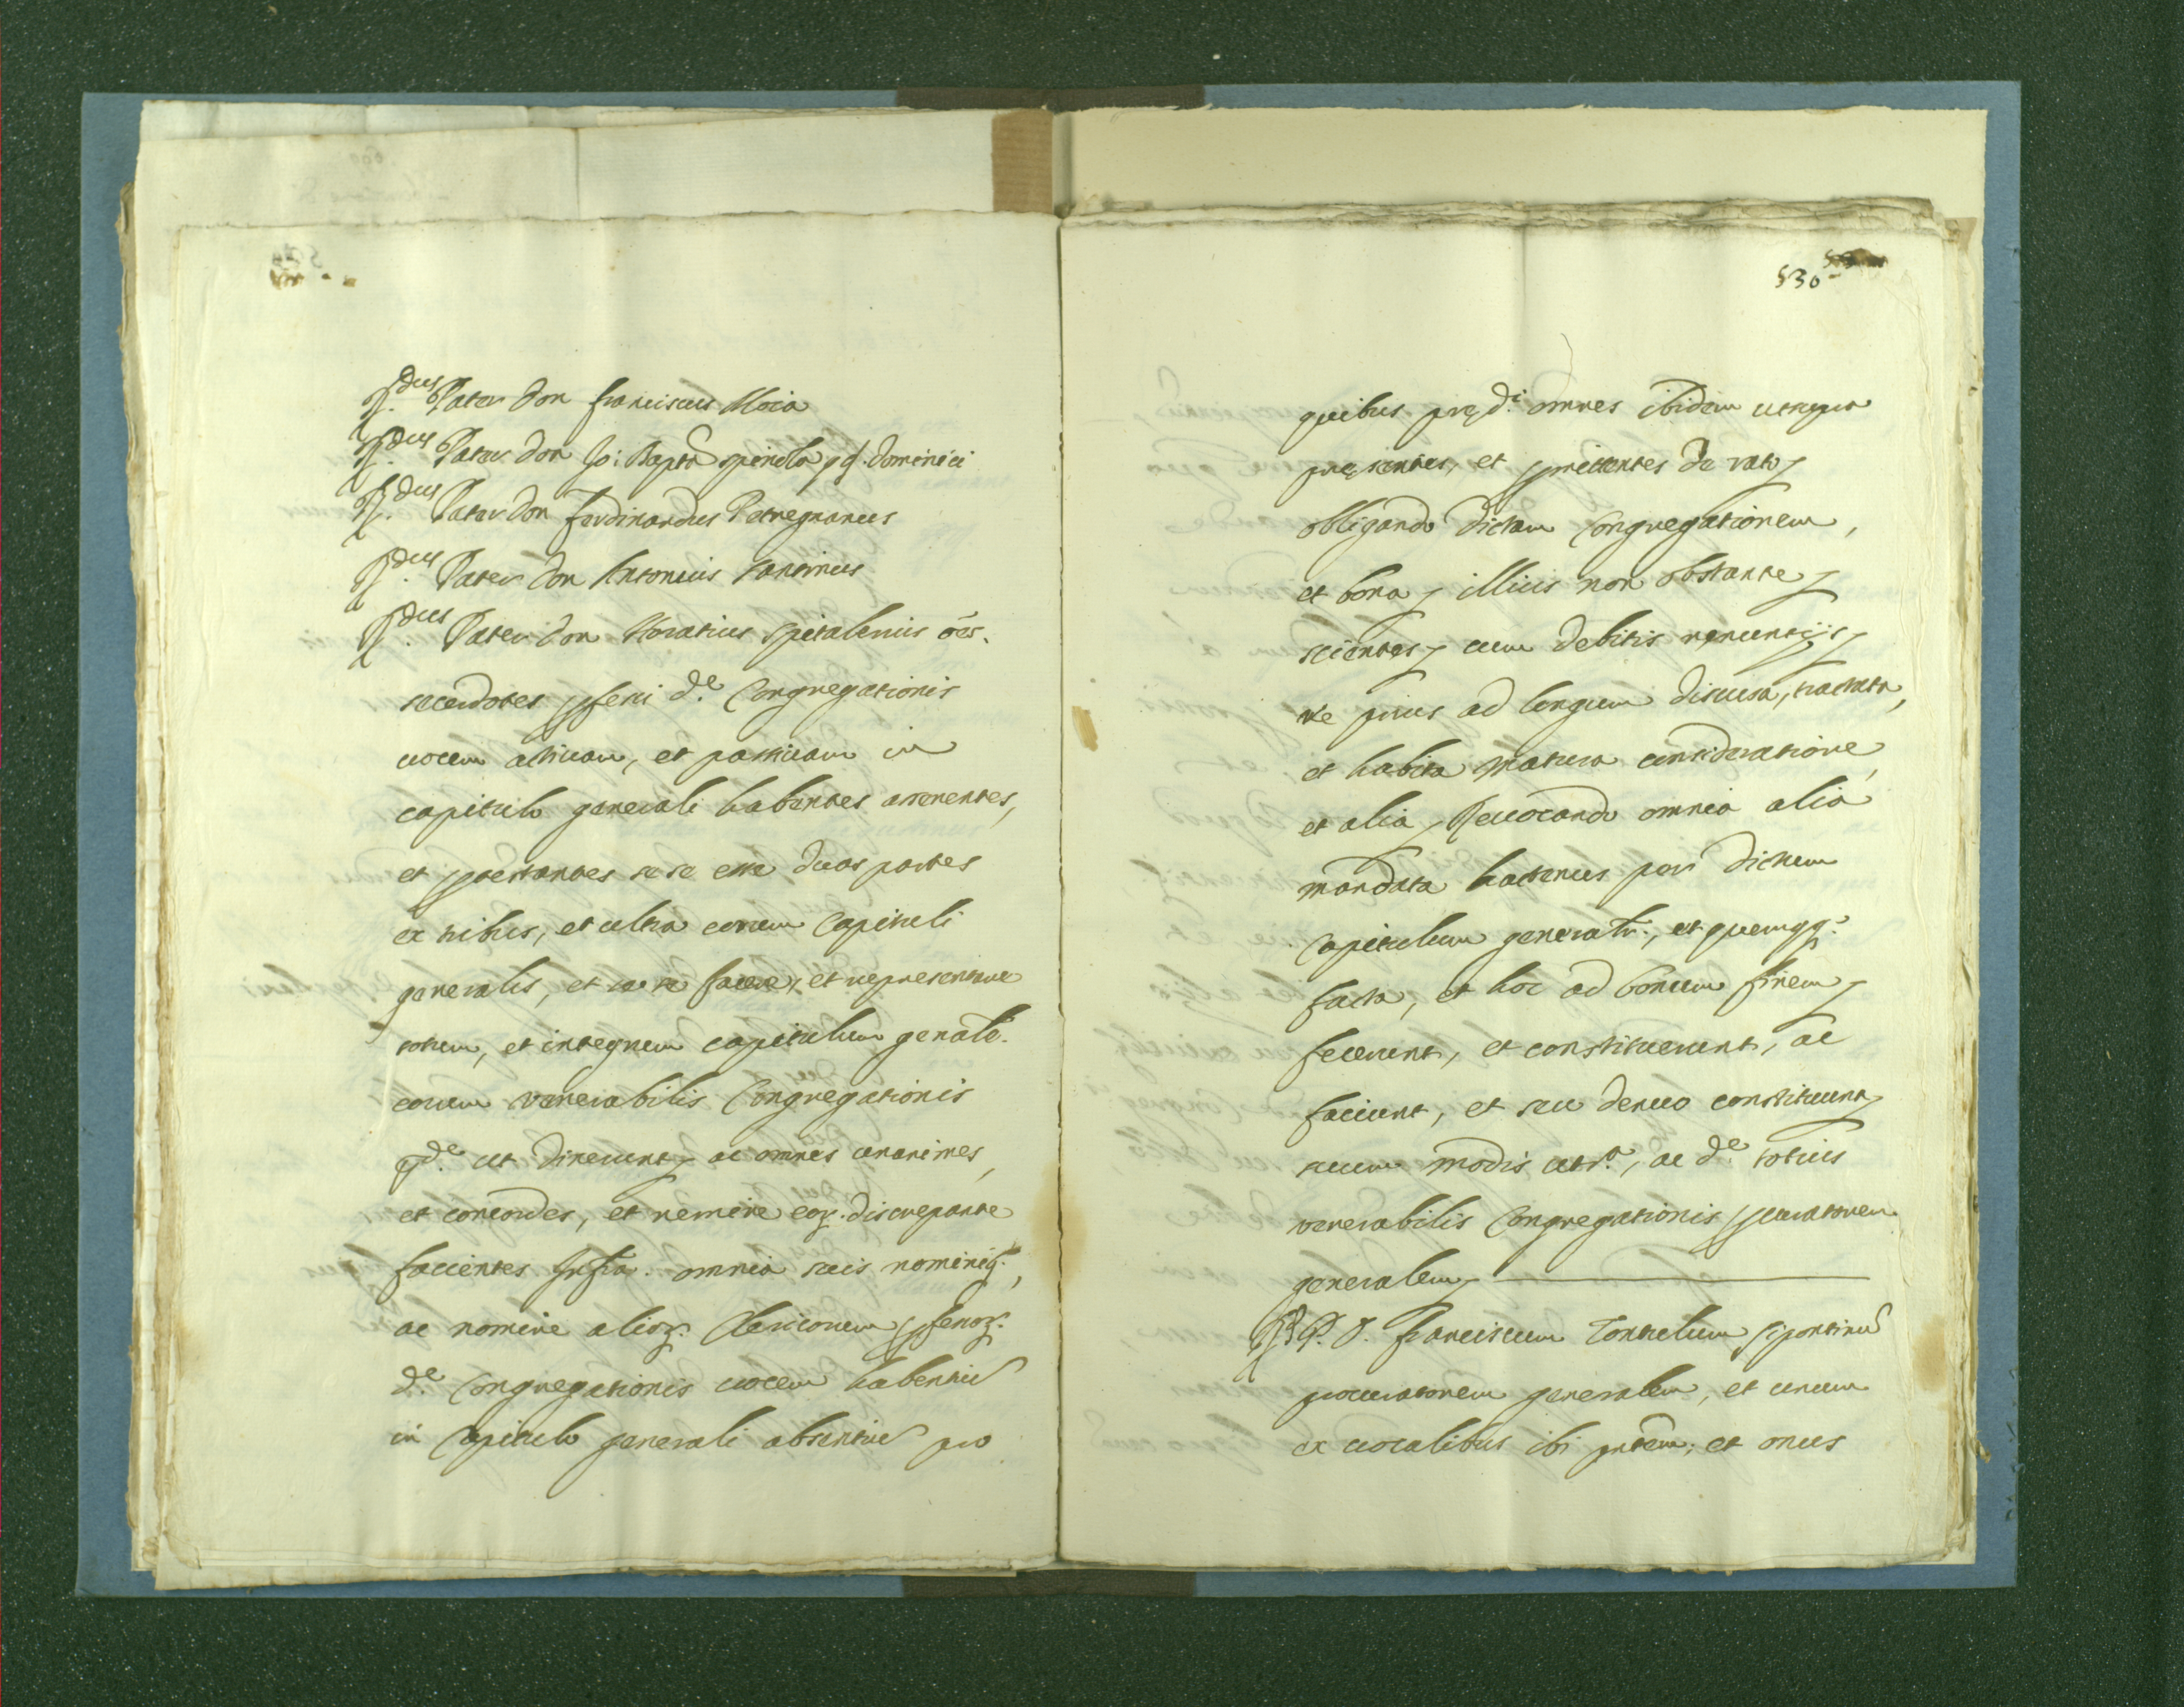 R.dus Pater Don Franciscus Moia
R.dus Pater Don Jo: Bapta Spinola q. Dominici
R.dus Pater Don Ferdinandus Petregnanus
R.dus Pater Don Antonius Santinus
R.dus Pater Don Horatius Spitalerius oēs.
sacerdotes pfessi d.e Congregationis
uocem actiuam, et passiuam in
capitulo generali habentes asserentes,
et ptestantes se se esse duas partes
ex tribus, et ultra eorum Capituli
generalis, et se se facere, et representare
totum, et integrum capitulum genale.
eorum venerabilis Congregationis
p.de ut dixerunt, ac omnes unanimes,
et concordes, et nemine eoȥ. discrepante
facientes Infra. omnia suis nominiq.,
ac nomine alioȥ. Clericorum pfessoȥ.
d.e Congregationis uocem habentiū
in Capitulo generali absentiū pro
530
quibus pręd.i omnes ibidem
pręsentes, et pmittentes de rato
obligando dictam Congregationem,
et bona illius non obstante
scientes cum debitis renuntijs
re prius ad longum discussa, tractata,
et habita matura consideratione,
et alia, Reuocando omnia alia
mandata hactenus per dictum
Capitulum generalr., et quemqq.
facta, et hoc ad bonum finem
fecerunt, et constituerunt, ac
faciunt, et seu denuo constituunt
suum modis, ac d.e totius
venerabilis Congregationis pcuratorem
generalem
R. P. D. Franciscum Tontulum sipontinū
procuratorem generalem, et unum
ex uocalibus ibi pntem; et onus